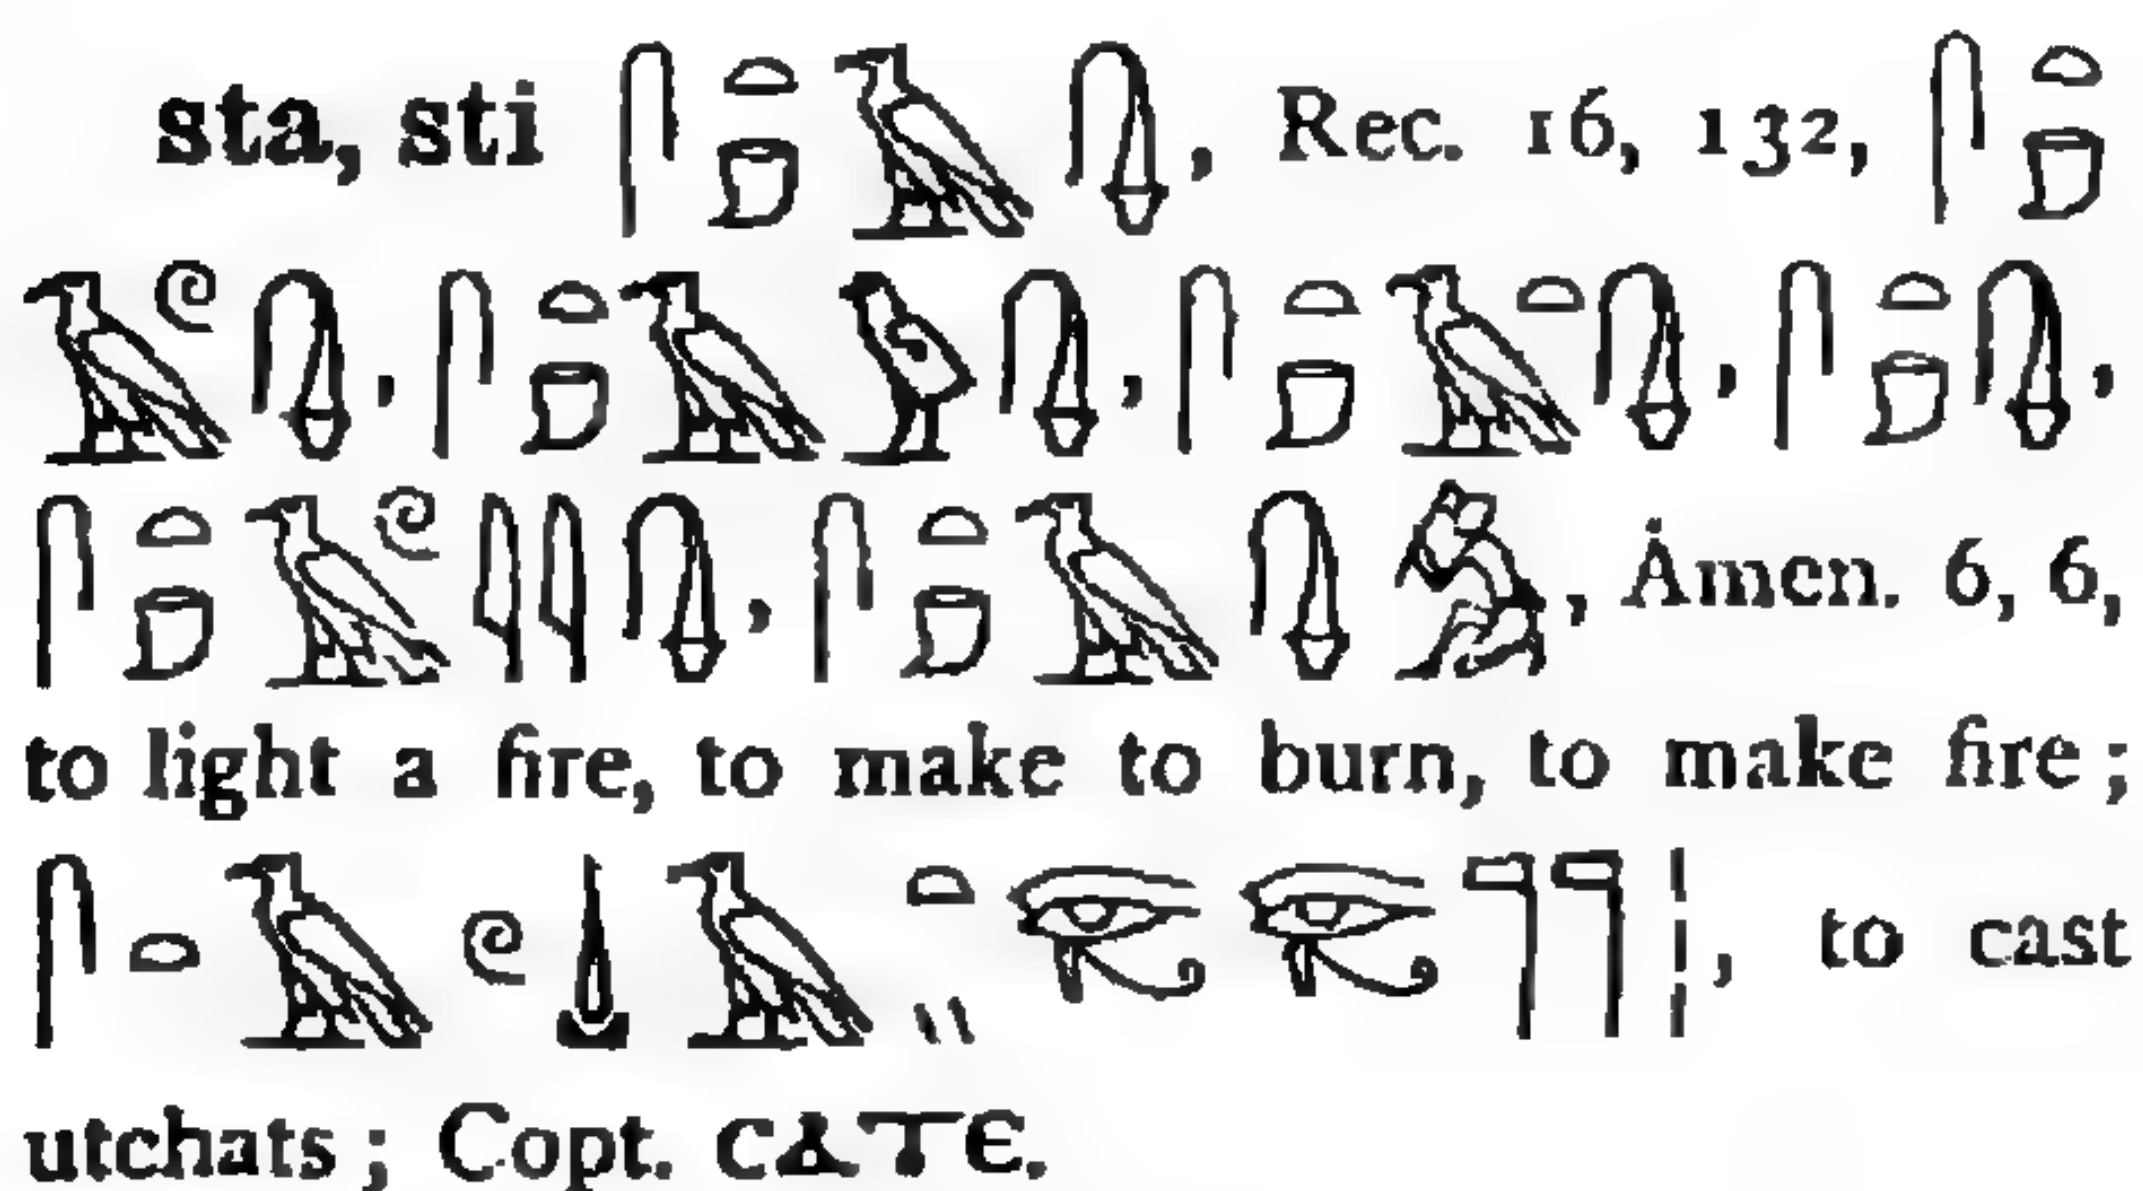 sta, sti 𓋴𓏏𓍔𓄿𓊮, Rec. 16, 132, 𓋴𓏏𓍔
𓄿𓏲𓊮, 𓋴𓏏𓍔𓄿𓅱𓊮, 𓋴𓏏𓍔𓄿𓏏𓊮, 𓋴𓏏𓍔𓊮,
𓋴𓏏𓍔𓄿𓏲𓇌𓊮, 𓋴𓏏𓍔𓄿𓊮, Ȧmen. 6, 6,
to light a fire, to make to burn, to make fire;
𓋴𓏏𓄿𓏲𓍑𓄿𓏏𓏭𓂀𓂀𓊹𓊹𓏼, to cast
utchats; Copt. ⲤⲀⲦⲈ.